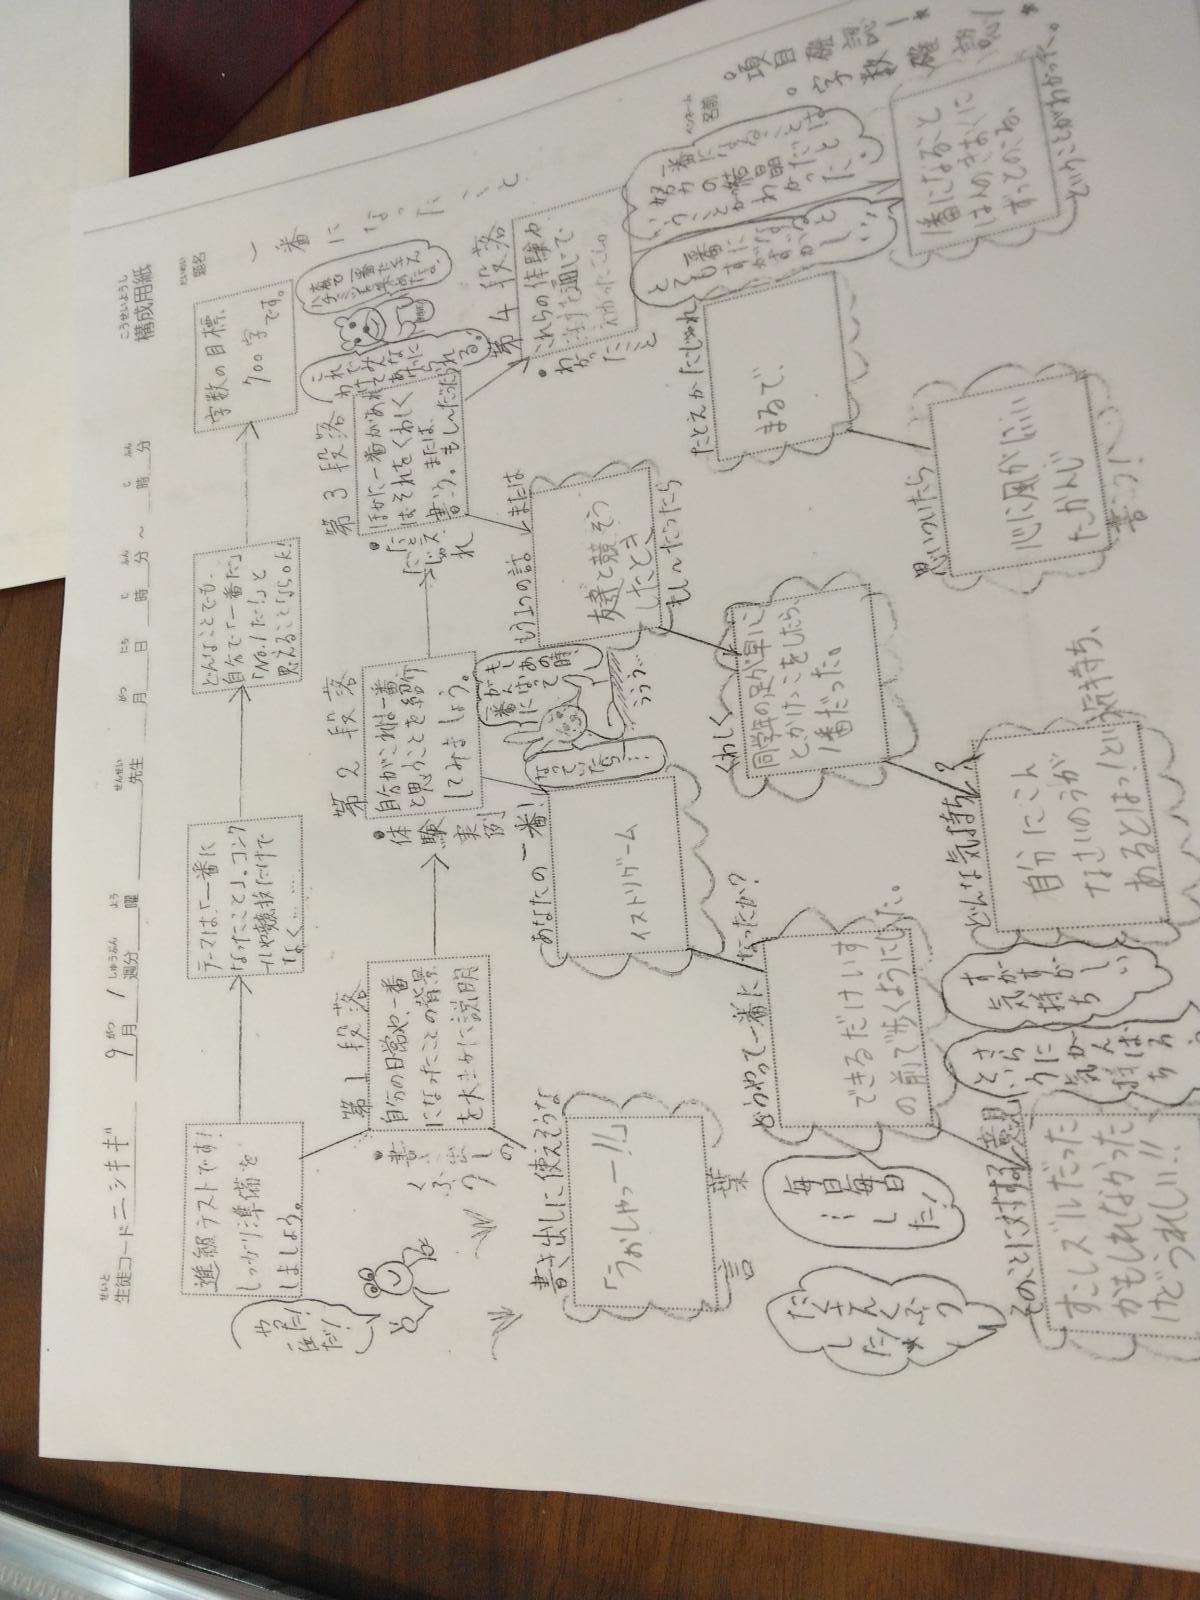 こうせいようし
構成用紙
せいと
生徒コード ニシキギ
9月 1週分
がつ しゅうぶん
曜
よう
先生
せんせい
月 日 時 分 ～ 時 分
がつ にち じ ふん じ ふん
だいめい
題名
一番になったこと
ペンネーム
名前
進級テストです!
しっかり準備を
しましょう。
テーマは、「一番に
なったこと」。コンク
ールや競技だけで
なく……
どんなことでも、
自分で「一番だ」
「No.1だ!」と
思えることならOK!
字数の目標、
700字です。
第1段落
自分の日常や、一番
になったことの背景
を大まかに説明
・書き出しのくふう
書き出しに使えそうな
言葉
「うおしゃっー!!」
第2段落
自分がこれは一番
と思うことを紹介
してみましょう。
・体験実例
あなたの一番!
イストリゲーム
どうやって一番になったか?
できるだけいす
の前で歩くようにした。
どんな気持ち?
自分にこん
なさいのうが
あるとはっ!という気持ち、
そのことに対する意見
すこしズルだった
かもしれなかった
けどうれしい!!
第3段落
ほかに一番があれ
ばそれをくわしく
書こう。または、
もし～だったら
もう1つの話 または
もし～だったら
友達と競そう
したとき
くわしく
同学年の足が早い子
とかけっこをしたら、
1番だった。
第4段落
これらの体験や
・わかったこと
たとえ
まるで、
思いついたら
書こう!
心に風がふい
たかんじ
1番になること
は人のきおくに
ずっとのこる、
ということがわかった。
すがすがしい気持ち
毎日毎日
…し
た!
・項目確認!
・字数確認!